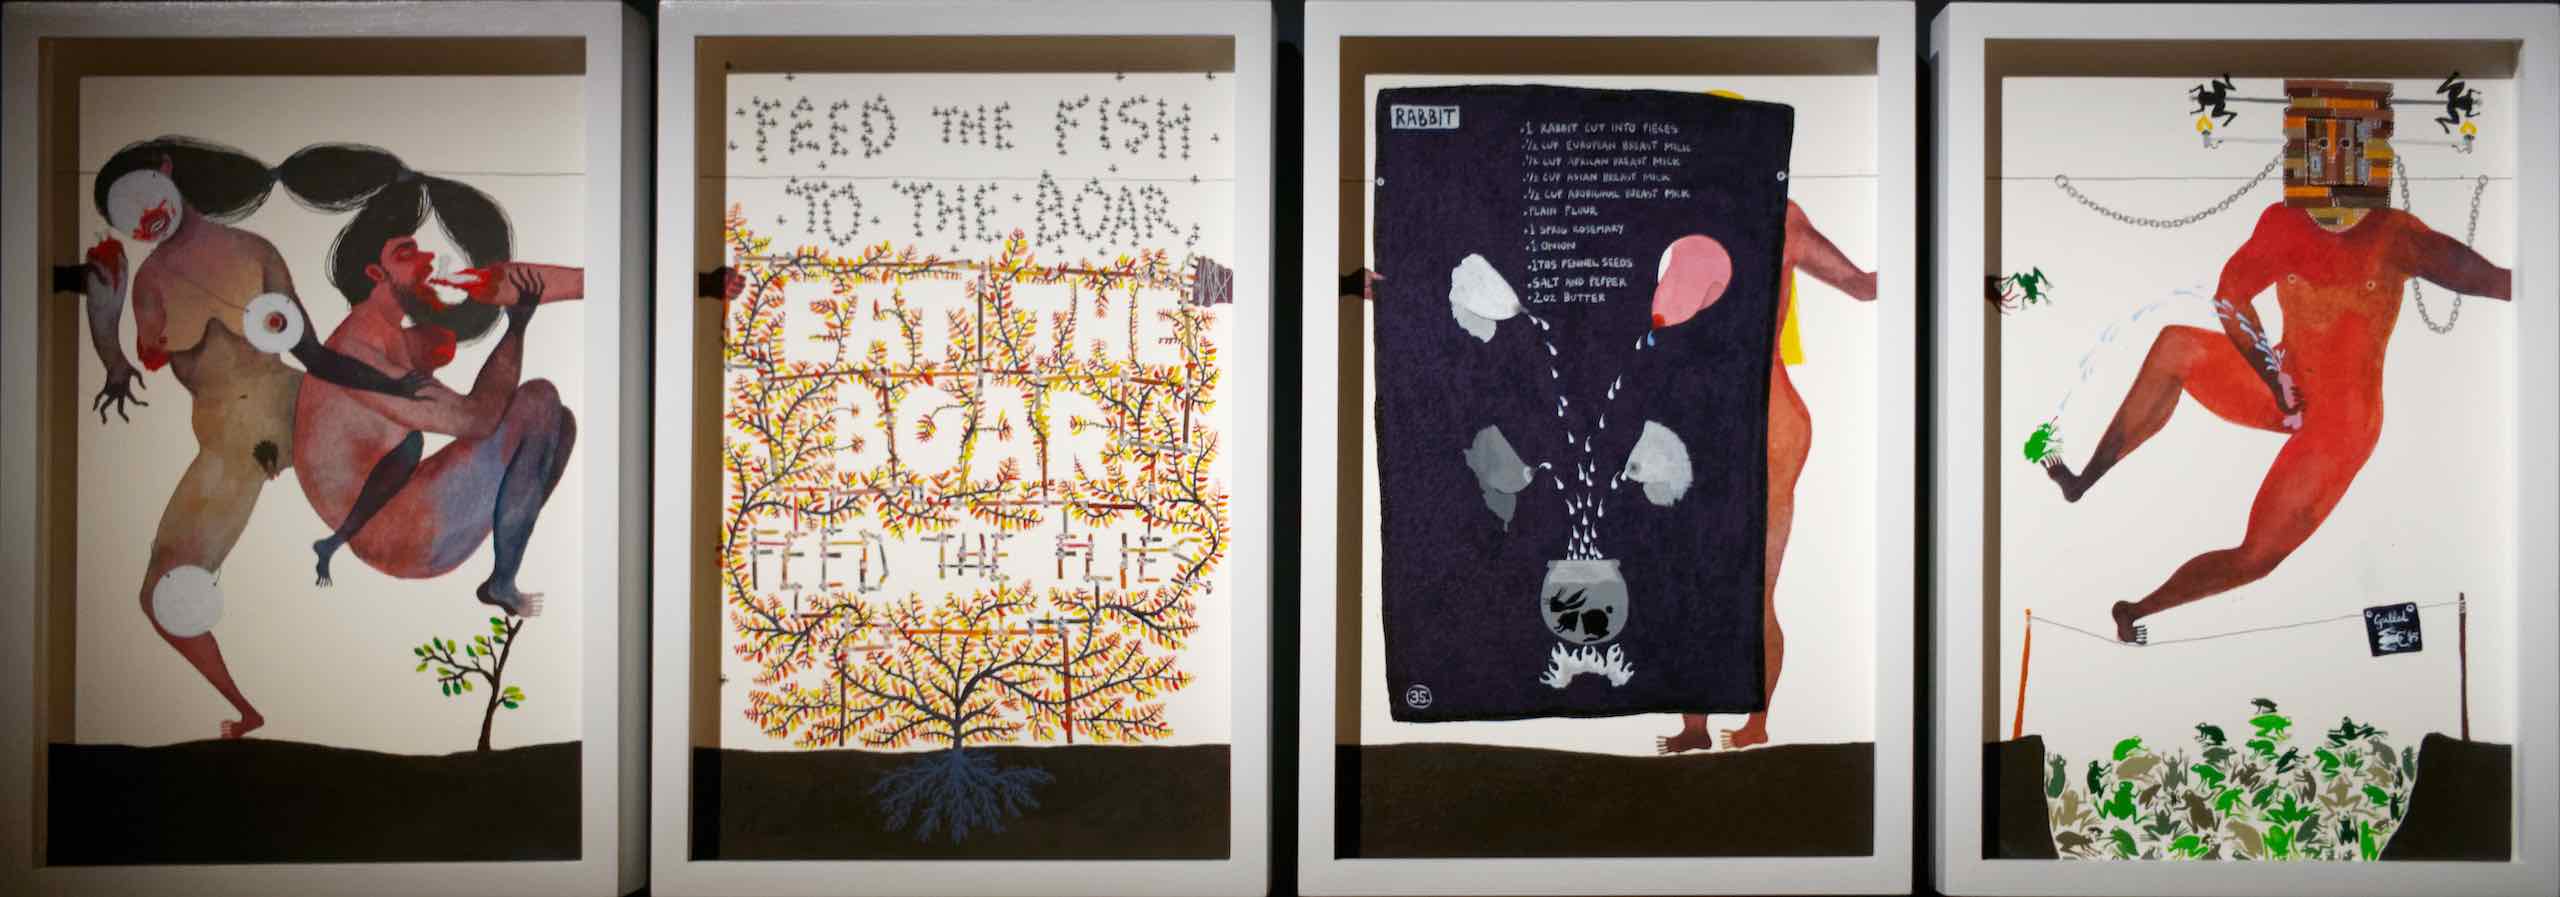 FEED THE FISH
TO THE BOAR,
EAT THE
BOAR
FEED THE FLIES
RABBIT
• 1 RABBIT CUT INTO PIECES
• 1/2 CUP EUROPEAN BREAST MILK
• 1/2 CUP AFRICAN BREAST MILK
• 1/2 CUP ASIAN BREAST MILK
• 1/2 CUP ABORIGINAL BREAST MILK
• PLAIN FLOUR
• 1 SPRIG ROSEMARY
• 1 ONION
• 1TBS FENNEL SEEDS
• SALT AND PEPPER
• 2OZ BUTTER
35.